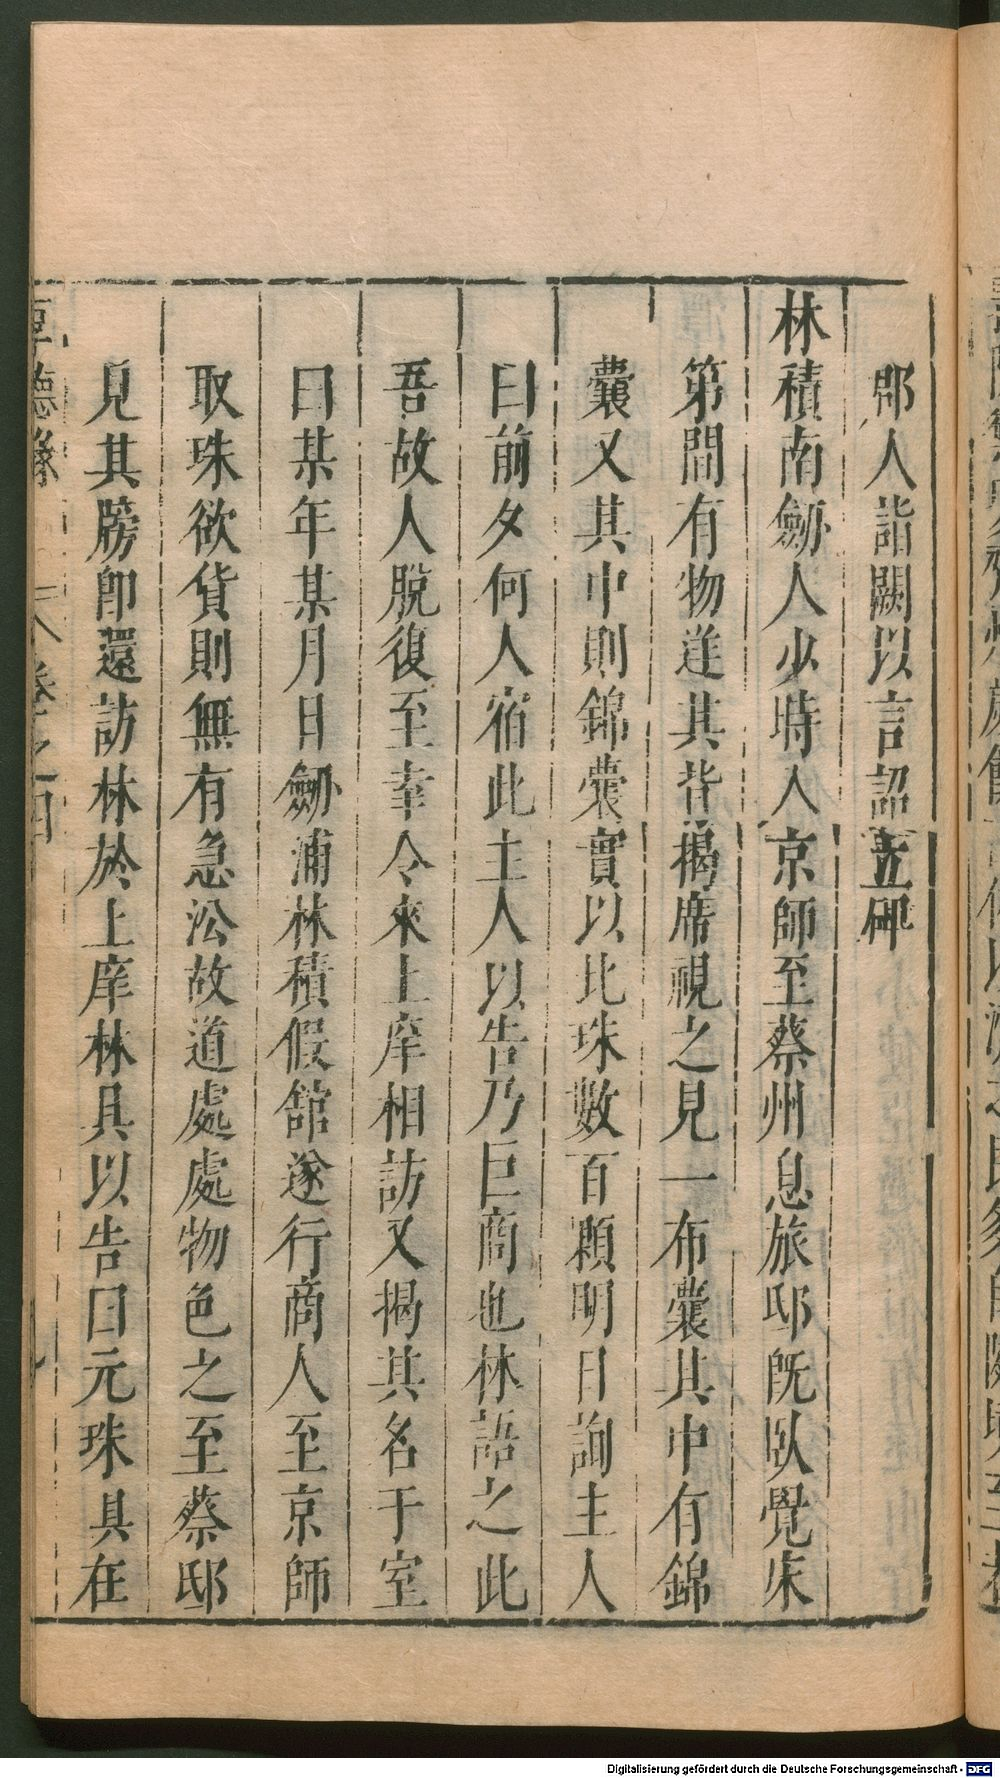 郡人詣闕以言詔立碑
林積南劒人少時入京師至蔡州息旅邸旣臥覺床
第間有物逆其背揭席視之見一布囊其中有錦
囊又其中則錦囊實以北珠數百顆明日詢主人
曰前夕何人宿此主人以告乃巨商也林語之此
吾故人脫復至幸令來上庠相訪又揭其名于室
曰某年某月日劒浦林積假舘遂行商人至京師
取珠欲貨則無有急㳂故道處處物色之至蔡邸
見其牓卽還訪林於上庠林具以告曰元珠具在
厚德錄 卷之四
Digitalisierung gefördert durch die Deutsche Forschungsgemeinschaft - DFG